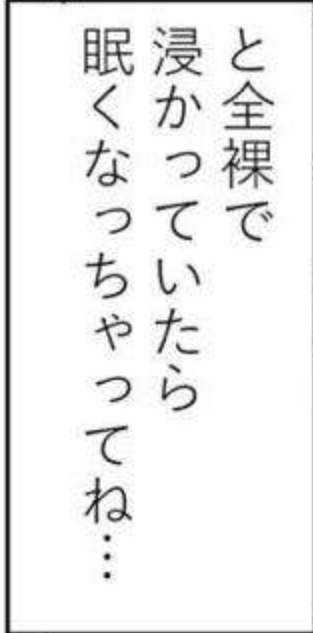 と全裸で
浸かっていたら
眠くなっちゃってね…